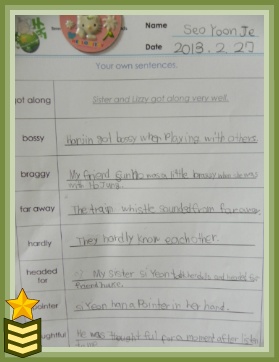 Name Seo Yoon Je
Date 2013. 2. 27
Your own sentences.
got along Sister and Lizzy got along very well.
bossy got bossy when playing with others
braggy My friend was a little braggy when he was
with
far away The train whistle sounded from far away.
hardly They hardly know each other.
headed for My sister si Yeon and headed for
house.
pointer si Yeon has a Pointer in her hand.
thoughtful He was thoughtful for a moment after